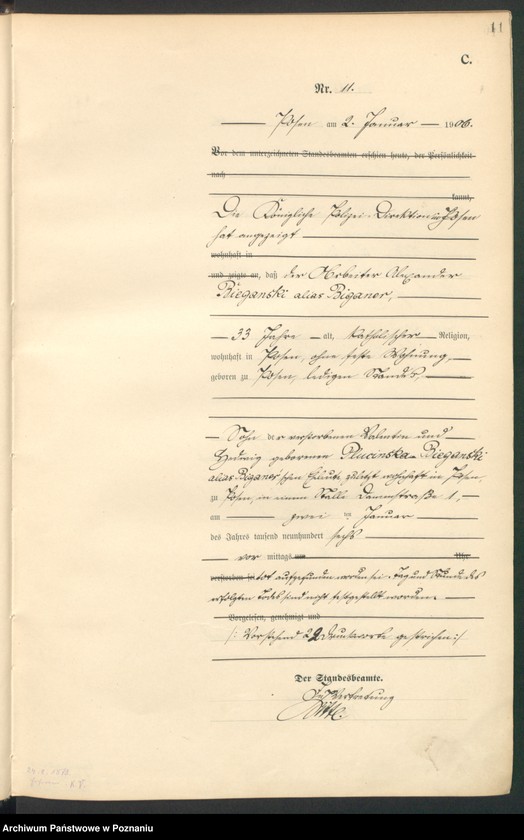 11
C.
Nr. 11.
Posen am 2. Januar 1906.
Vor dem unterzeichneten Standesbeamten erschien heute, der Persönlichkeit
nach
kannt,
Die Königliche Polizei-Direktion in Posen
hat angezeigt
wohnhaft in
und zeigte an, daß der Arbeiter Alexander
Bieganski alias Biganer,
33 Jahre alt, katholischer Religion,
wohnhaft in Posen, ohne feste Wohnung,
geboren zu Posen, ledigen Standes,
Sohn der verstorbenen Valentin und
Hedwig geborenen Plucinska-Bieganski
alias Biganer'schen Eheleute zuletzt wohnhaft in Posen,
zu Posen, in einem Stalle Dammstraße 1,
am zwei ten Januar
des Jahres tausend neunhundert sechs
vor mittags um Uhr
verstorben sei tot aufgefunden worden sei. Tag und Stunde des
erfolgten Todes sind nicht festgestellt worden.
Vorgelesen, genehmigt und
/: Vorstehend 22 Druckworte gestrichen :/
Der Standesbeamte.
In Vertretung
K.T.
Archiwum Państwowe w Poznaniu